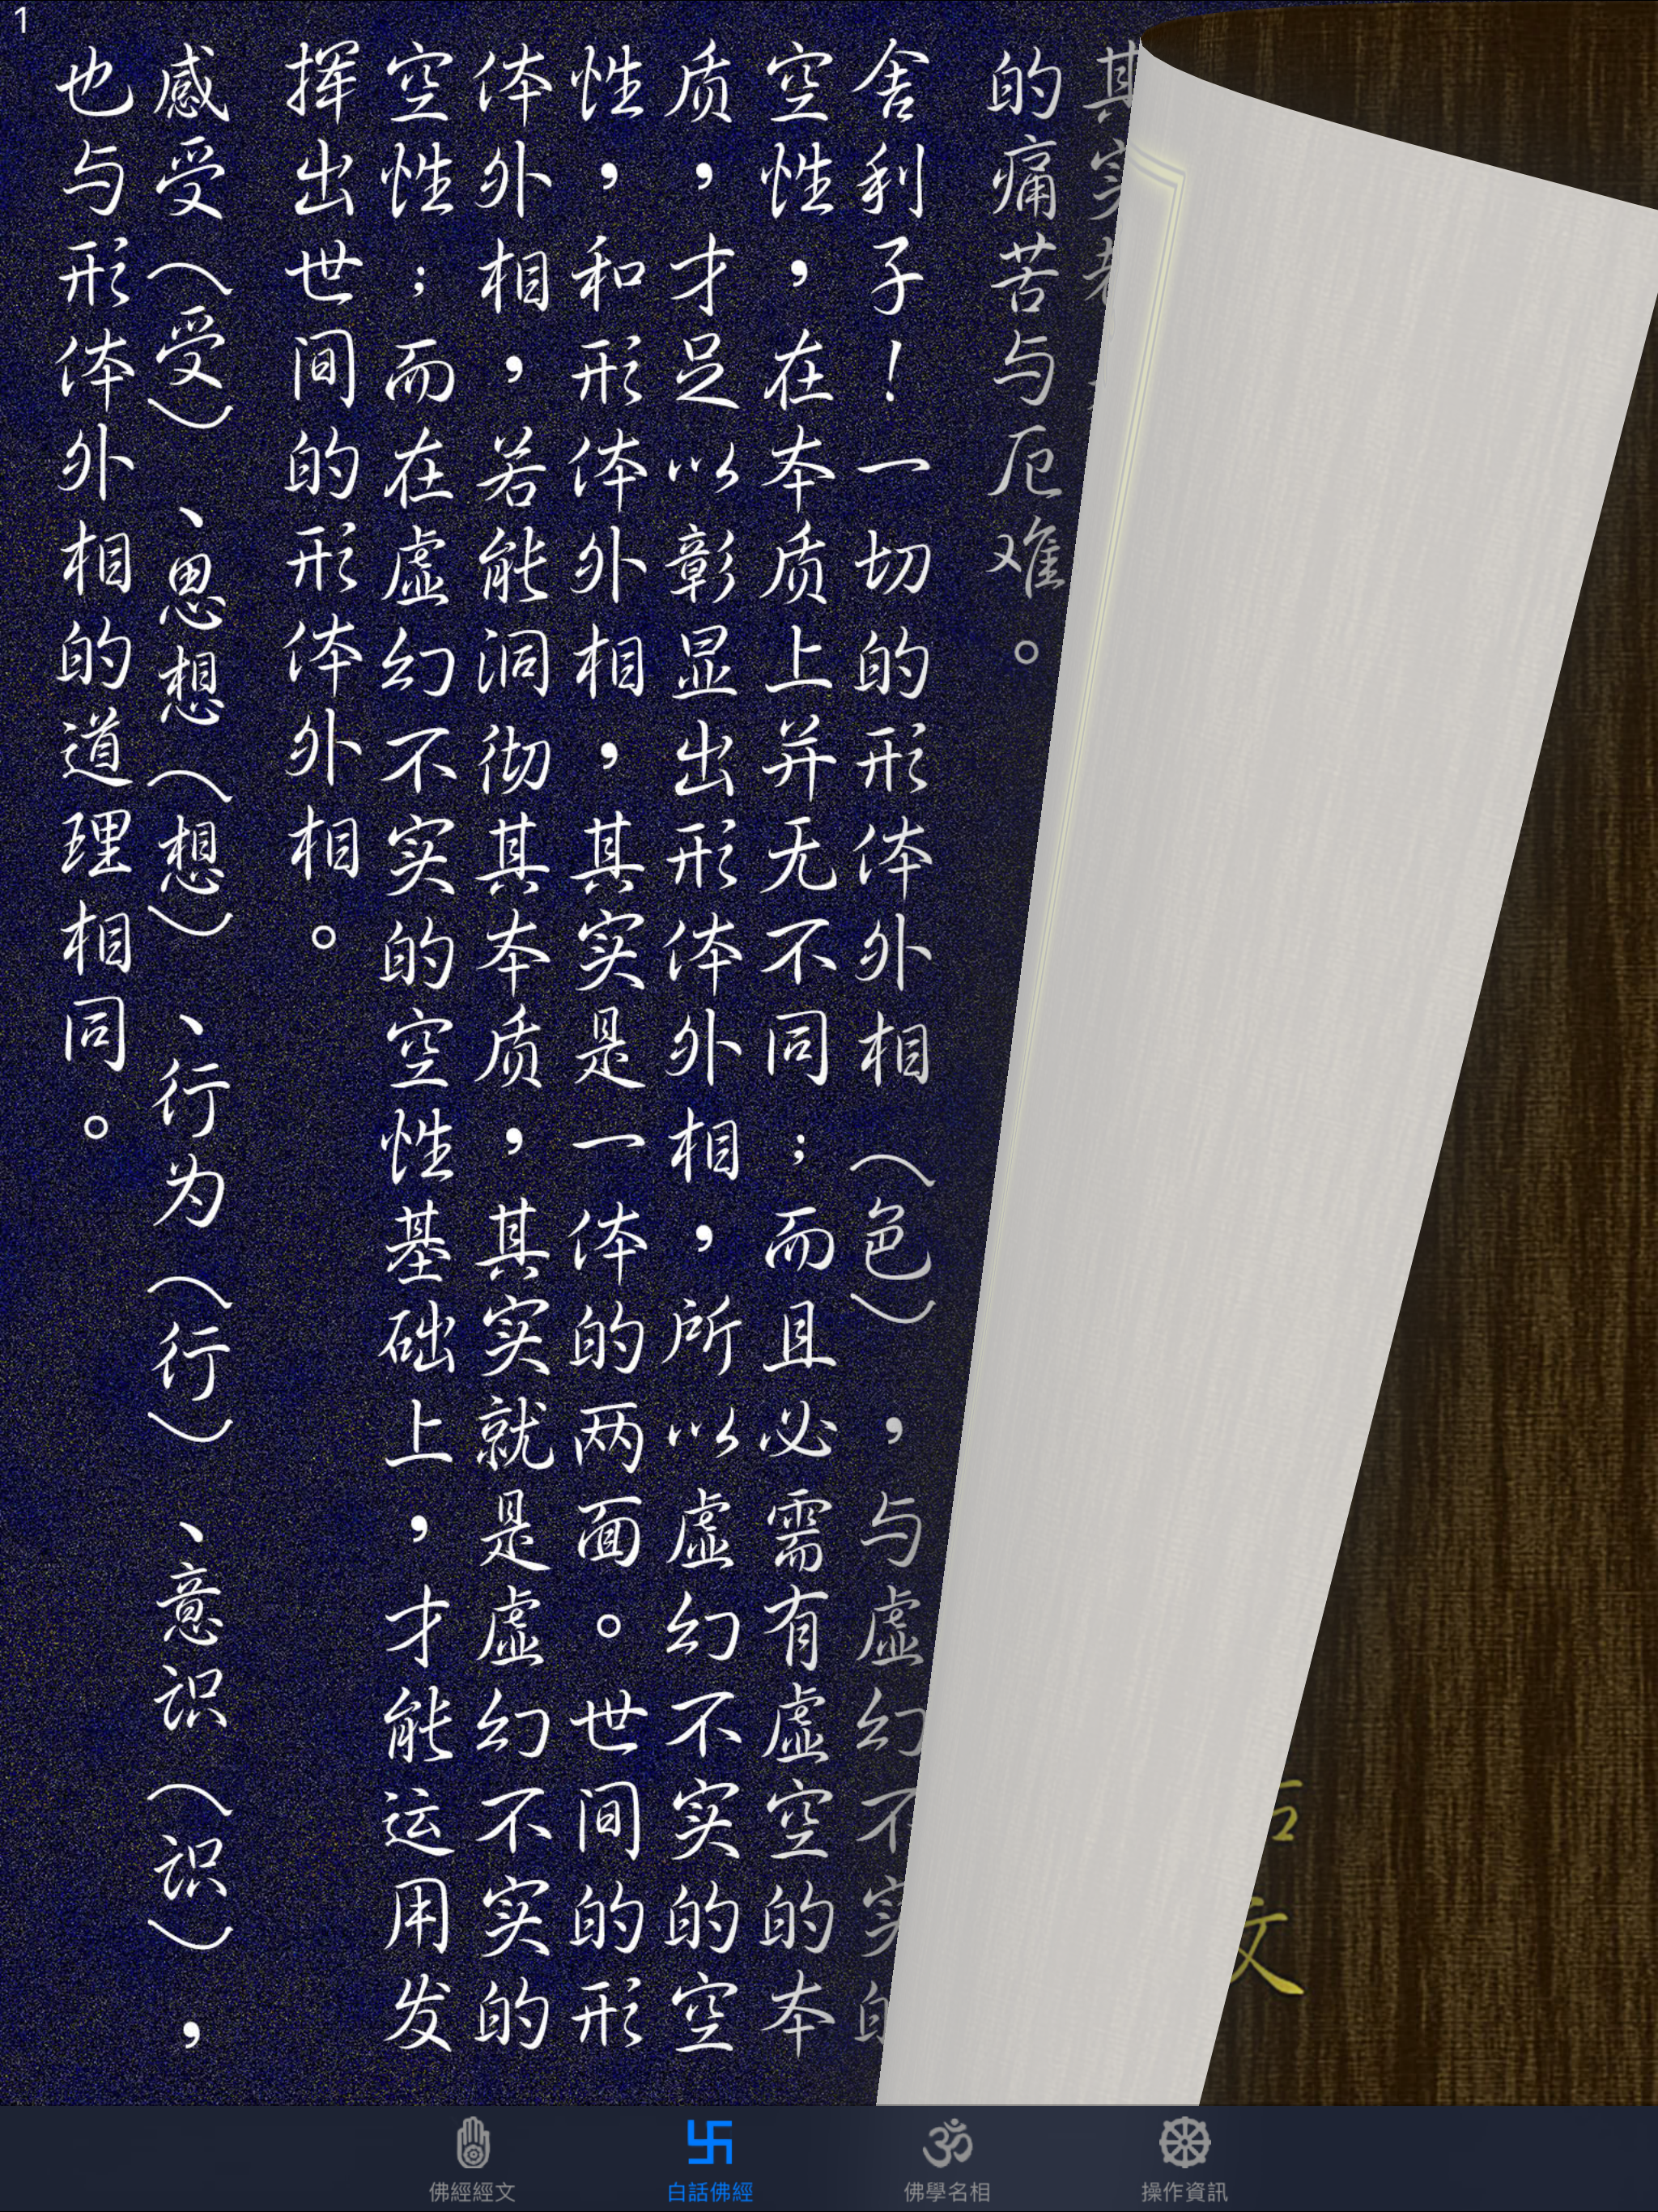 1
其实
的痛苦与厄难。
舍利子！一切的形体外相（色），与虚幻不实的
空性，在本质上并无不同；而且必需有虚空的本
质，才足以彰显出形体外相，所以虚幻不实的空
性，和形体外相，其实是一体的两面。世间的形
体外相，若能洞彻其本质，其实就是虚幻不实的
空性；而在虚幻不实的空性基础上，才能运用发
挥出世间的形体外相。
感受（受）、思想（想）、行为（行）、意识（识），
也与形体外相的道理相同。
文
佛經經文
白話佛經
佛學名相
操作資訊